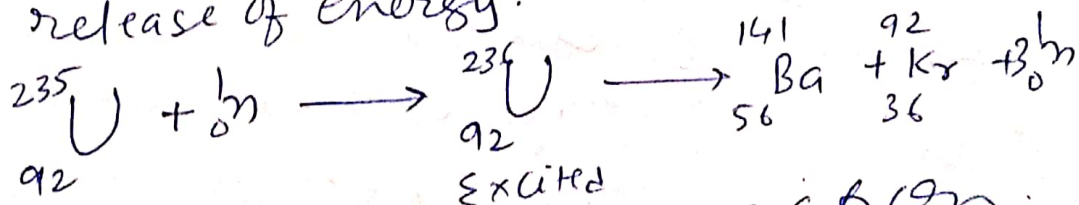 release of energy.
²³⁵₉₂U + ¹₀n ⟶ ²³⁶₉₂U ⟶ ¹⁴¹₅₆Ba + ⁹²₃₆Kr + 3¹₀n
Excited